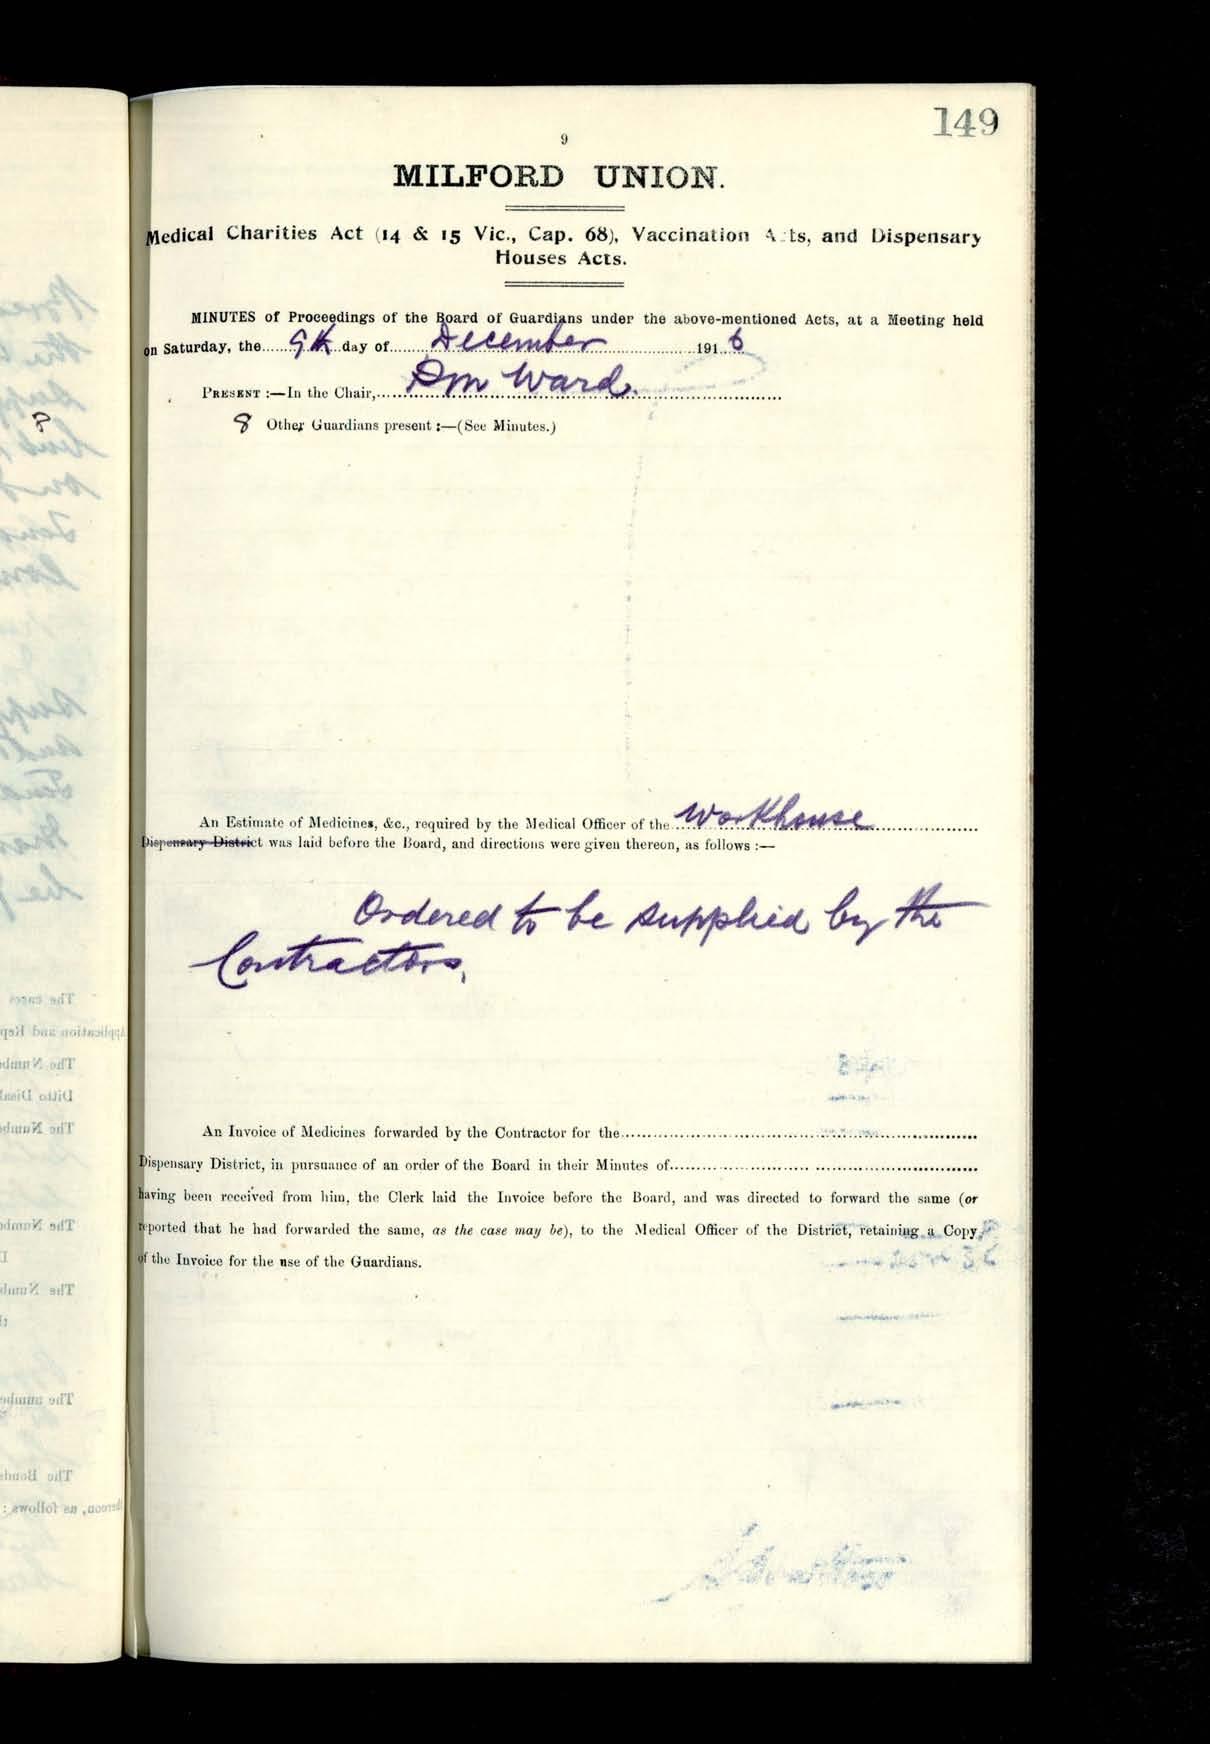 149
9
MILFORD UNION.
Medical Charities Act (14 & 15 Vic., Cap. 68), Vaccination Acts, and Dispensary
Houses Acts.
MINUTES of Proceedings of the Board of Guardians under the above-mentioned Acts, at a Meeting held
on Saturday, the 9th day of December 1916
PRESENT :—In the Chair, Ward.
8 Other Guardians present :—(See Minutes.)
An Estimate of Medicines, &c., required by the Medical Officer of the Workhouse
Dispensary District was laid before the Board, and directions were given thereon, as follows :—
Ordered to be supplied by the
Contractors.
An Invoice of Medicines forwarded by the Contractor for the
Dispensary District, in pursuance of an order of the Board in their Minutes of
having been received from him, the Clerk laid the Invoice before the Board, and was directed to forward the same (or
reported that he had forwarded the same, as the case may be), to the Medical Officer of the District, retaining a Copy
of the Invoice for the use of the Guardians.